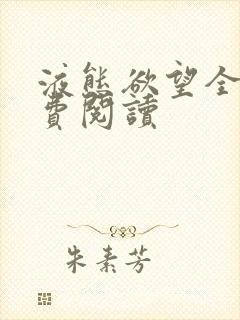 液態欲望全
費閱讀
朱素芳